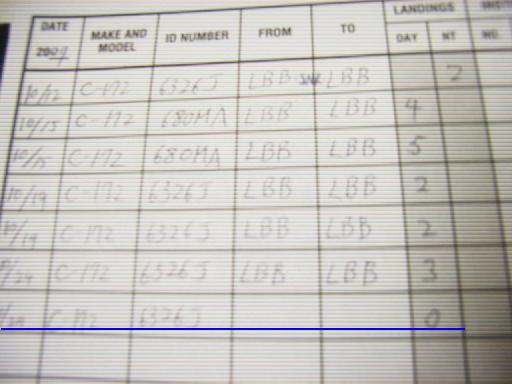 DATE MAKE AND MODEL ID NUMBER FROM TO LANDINGS
2009 DAY NT NO.
10/12 C-172 6326J LBB LBB 2
10/15 C-172 680MA LBB LBB 4
10/15 C-172 680MA LBB LBB 5
10/19 C-172 6326J LBB LBB 2
10/19 C-172 6326J LBB LBB 2
C-172 6326J LBB LBB 3
C-172 6326J 0